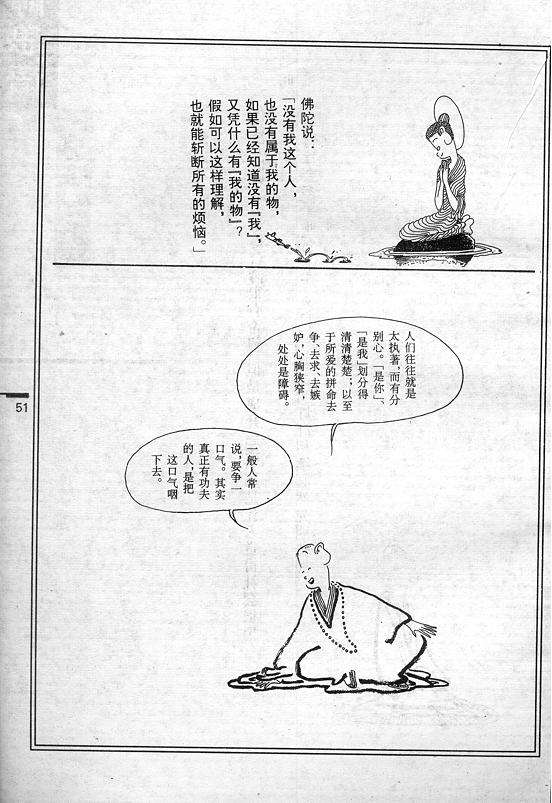 佛陀说：
「没有我这个人，
也没有属于我的物，
如果已经知道没有『我』，
又凭什么有『我的物』？
假如可以这样理解，
也就能斩断所有的烦恼。」
人们往往就是
太执著，而有分
别心。「是你」、
「是我」划分得
清清楚楚；以至
于所爱的拼命去
争、去求、去嫉
妒，心胸狭窄，
处处是障碍。
一般人常
说，要争一
口气。其实
真正有功夫
的人，是把
这口气咽
下去。
51